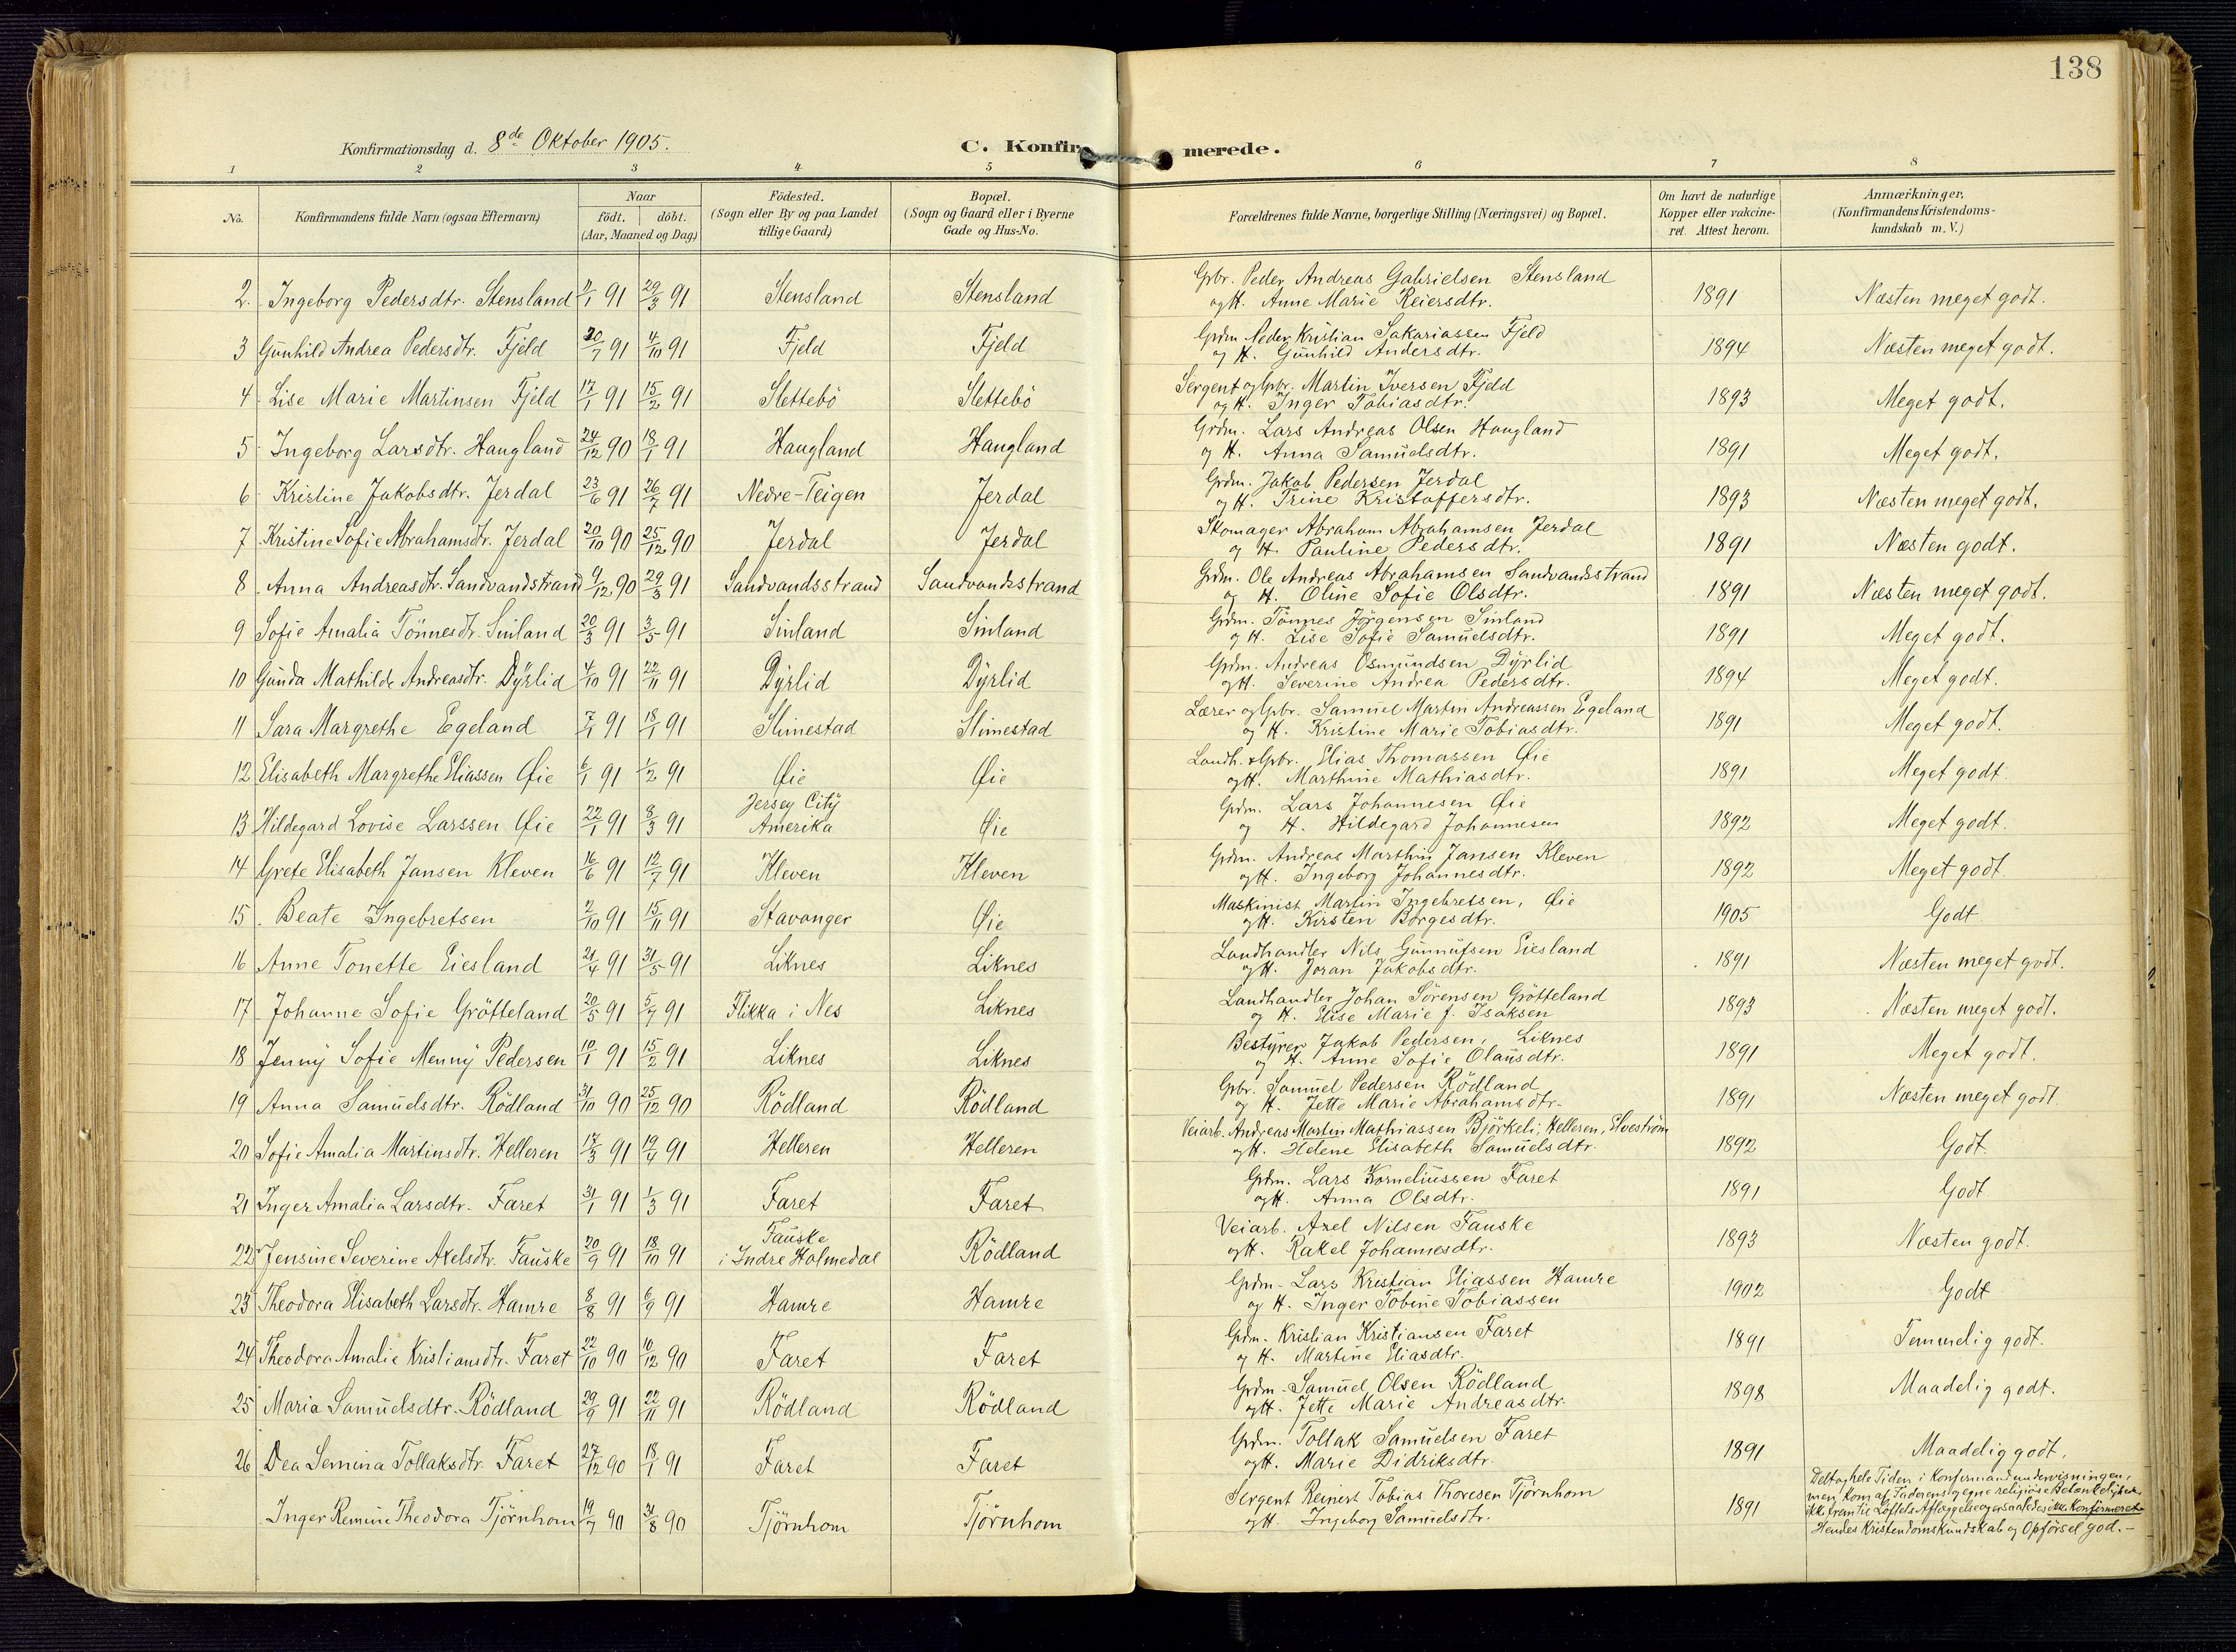 138
Konfirmationsdag d. 8de Oktober 1905.
C. Konfirmerede.
1 2 3 4 5 6 7 8
No.
Konfirmandens fulde Navn (ogsaa Efternavn)
Naar
födt. döbt.
(Aar, Maaned og Dag)
Födested.
(Sogn eller By og paa Landet
tillige Gaard)
Bopæl.
(Sogn og Gaard eller i Byerne
Gade og Hus-No.
Forældrenes fulde Navne, borgerlige Stilling (Næringsvei) og Bopæl.
Om havt de naturlige
Kopper eller vakcine-
ret. Attest herom.
Anmærkninger.
(Konfirmandens Kristendoms-
kundskab m. V.)
Gbr. Peder Andreas Gabrielsen Stensland
2. Ingeborg Pedersdtr. Stensland 91 29/3 91 Stensland Stensland og H. Anne Marie Reiersdtr. 1891 Næsten meget godt.
Gdm. Peder Kristian Sakariassen Fjeld
3 Gunhild Andrea Pedersdtr. Fjeld 20/7 91 4/10 91 Fjeld Fjeld og H. Gunhild Andersdtr. 1894 Næsten meget godt.
Sergent og Gbr. Martin Iversen Fjeld
4 Lise Marie Martinsen Fjeld 17/1 91 15/2 91 Slettebö Slettebö og H. Inger Tobiasdtr. 1893 Meget godt.
Grdm. Lars Andreas Olsen Haugland
5 Ingeborg Larsdtr. Haugland 24/12 90 18/1 91 Haugland Haugland og H. Anna Samuelsdtr. 1891 Meget godt.
Grdm. Jakob Pedersen Jerdal
6 Kristine Jakobsdtr. Jerdal 23/6 91 26/7 91 Nedre-Teigen Jerdal og H. Trine Kristoffersdtr. 1893 Næsten meget godt.
Skomager Abraham Abrahamsen Jerdal
7 Kristine Sofie Abrahamsdtr. Jerdal 20/10 90 25/12 90 Jerdal Jerdal og H. Pauline Pedersdtr. 1891 Næsten godt.
Grdm. Ole Andreas Abrahamsen Sandvandsstrand
8 Anna Andreasdtr. Sandvandstrand 9/12 90 29/3 91 Sandvandsstrand Sandvandsstrand og H. Oline Sofie Olsdtr. 1891 Næsten meget godt.
Grdm. Tönnes Jörgensen Sinland
9 Sofie Amalia Tönnesdtr. Sinland 20/3 91 3/5 91 Sinland Sinland og H. Lise Sofie Samuelsdtr. 1891 Meget godt.
Grdm. Andreas Osmundsen Dyrlid
10 Gunda Mathilde Andreasdtr. Dyrlid 4/10 91 22/11 91 Dyrlid Dyrlid og H. Severine Andrea Pedersdtr. 1894 Meget godt.
Lærer og Gbr. Samuel Martin Andreassen Egeland
11 Sara Margrethe Egeland 7/1 91 18/1 91 Slimestad Slimestad og H. Kristine Marie Tobiasdtr. 1891 Meget godt.
Landh. & Gbr. Elias Thomassen Øie
12 Elisabeth Margrethe Eliassen Øie 6/1 91 1/2 91 Øie Øie og H. Marthine Mathiasdtr. 1891 Meget godt.
Jersey City
Grdm. Lars Johannesen Øie
13 Hildegard Lovise Larssen Øie 22/1 91 8/3 91 Amerika Øie og H. Hildegard Johannesen 1892 Meget godt.
Grdm. Andreas Marthin Jansen Kleven
14 Grete Elisabeth Jansen Kleven 16/6 91 12/7 91 Kleven Kleven og H. Ingeborg Johannesdtr. 1892 Meget godt.
Maskinist Martin Ingebretsen, Øie
15. Beate Ingebretsen 2/10 91 15/11 91 Stavanger Øie og H. Kirsten Borgesdtr. 1905 Godt
Landhandler Nils Gunnufsen Eiesland
16 Anne Tonette Eiesland 21/4 91 31/5 91 Liknes Liknes og H. Joran Jakobsdtr. 1891 Næsten meget godt.
Landhandler Johan Sörensen Grötteland
17 Johanne Sofie Grötteland 20/5 91 5/7 91 Flikka i Nes Liknes og H. Elise Marie f. Isaksen 1893 Næsten meget godt.
Bestyrer Jakob Pedersen, Liknes
18 Jenny Sofie Menny Pedersen 10/1 91 15/2 91 Liknes Liknes og H. Anne Sofie Olausdtr. 1891 Meget godt.
Gbr. Samuel Pedersen Rödland
19 Anna Samuelsdtr. Rödland 31/10 90 25/12 90 Rödland Rödland og H. Jette Marie Abrahamsdtr. 1891 Næsten meget godt
Veiarb. Andreas Martin Mathiassen Björkeli, Helleren, Elveström
20 Sofie Amalia Martinsdtr. Helleren 17/3 91 19/4 91 Helleren Helleren og H. Helene Elisabeth Samuelsdtr. 1892 Godt.
Grdm. Lars Korneliussen Faret
21 Inger Amalia Larsdtr. Faret 31/1 91 1/3 91 Faret Faret og H. Anna Olsdtr. 1891 Godt
Fauske
Veiarb. Axel Nilsen Fauske
22 Jensine Severine Axelsdtr. Fauske 20/9 91 18/10 91 i Indre Holmedal Rödland og H. Rakel Johannesdtr. 1893 Næsten godt.
Grdm. Lars Kristian Eliassen Hamre
23 Theodora Elisabeth Larsdtr. Hamre 8/8 91 6/9 91 Hamre Hamre og H. Inger Tobine Tobiassen 1902 Godt
Grdm. Kristian Kristiansen Faret
24 Theodora Amalie Kristiansdtr. Faret 22/10 90 10/12 90 Faret Faret og H. Martine Eliasdtr. 1891 Temmelig godt.
Grdm. Samuel Olsen Rödland
25 Maria Samuelsdtr. Rödland 29/9 91 22/11 91 Rödland Rödland og H. Jette Marie Andreasdtr. 1898 Maadelig godt.
Grdm. Tollak Samuelsen Faret
26 Dea Semina Tollaksdtr. Faret 27/12 90 18/1 91 Faret Faret og H. Marie Didriksdtr. 1891 Maadelig godt.
Sergent Reinert Tobias Thoresen Tjörnhom
Inger Remine Theodora Tjörnhom 19/7 90 31/8 90 Tjörnhom Tjörnhom og H. Ingeborg Samuelsdtr. 1891
Deltog hele Tiden i Konfirmandundervisningen,
men kom af Faderens og egne religiöse Betænkeligheder
ikke frem til Löftets Aflæggelse og er saaledes ikke Konfirmeret
Hendes Kristendomskundskab og Opförsel god. –